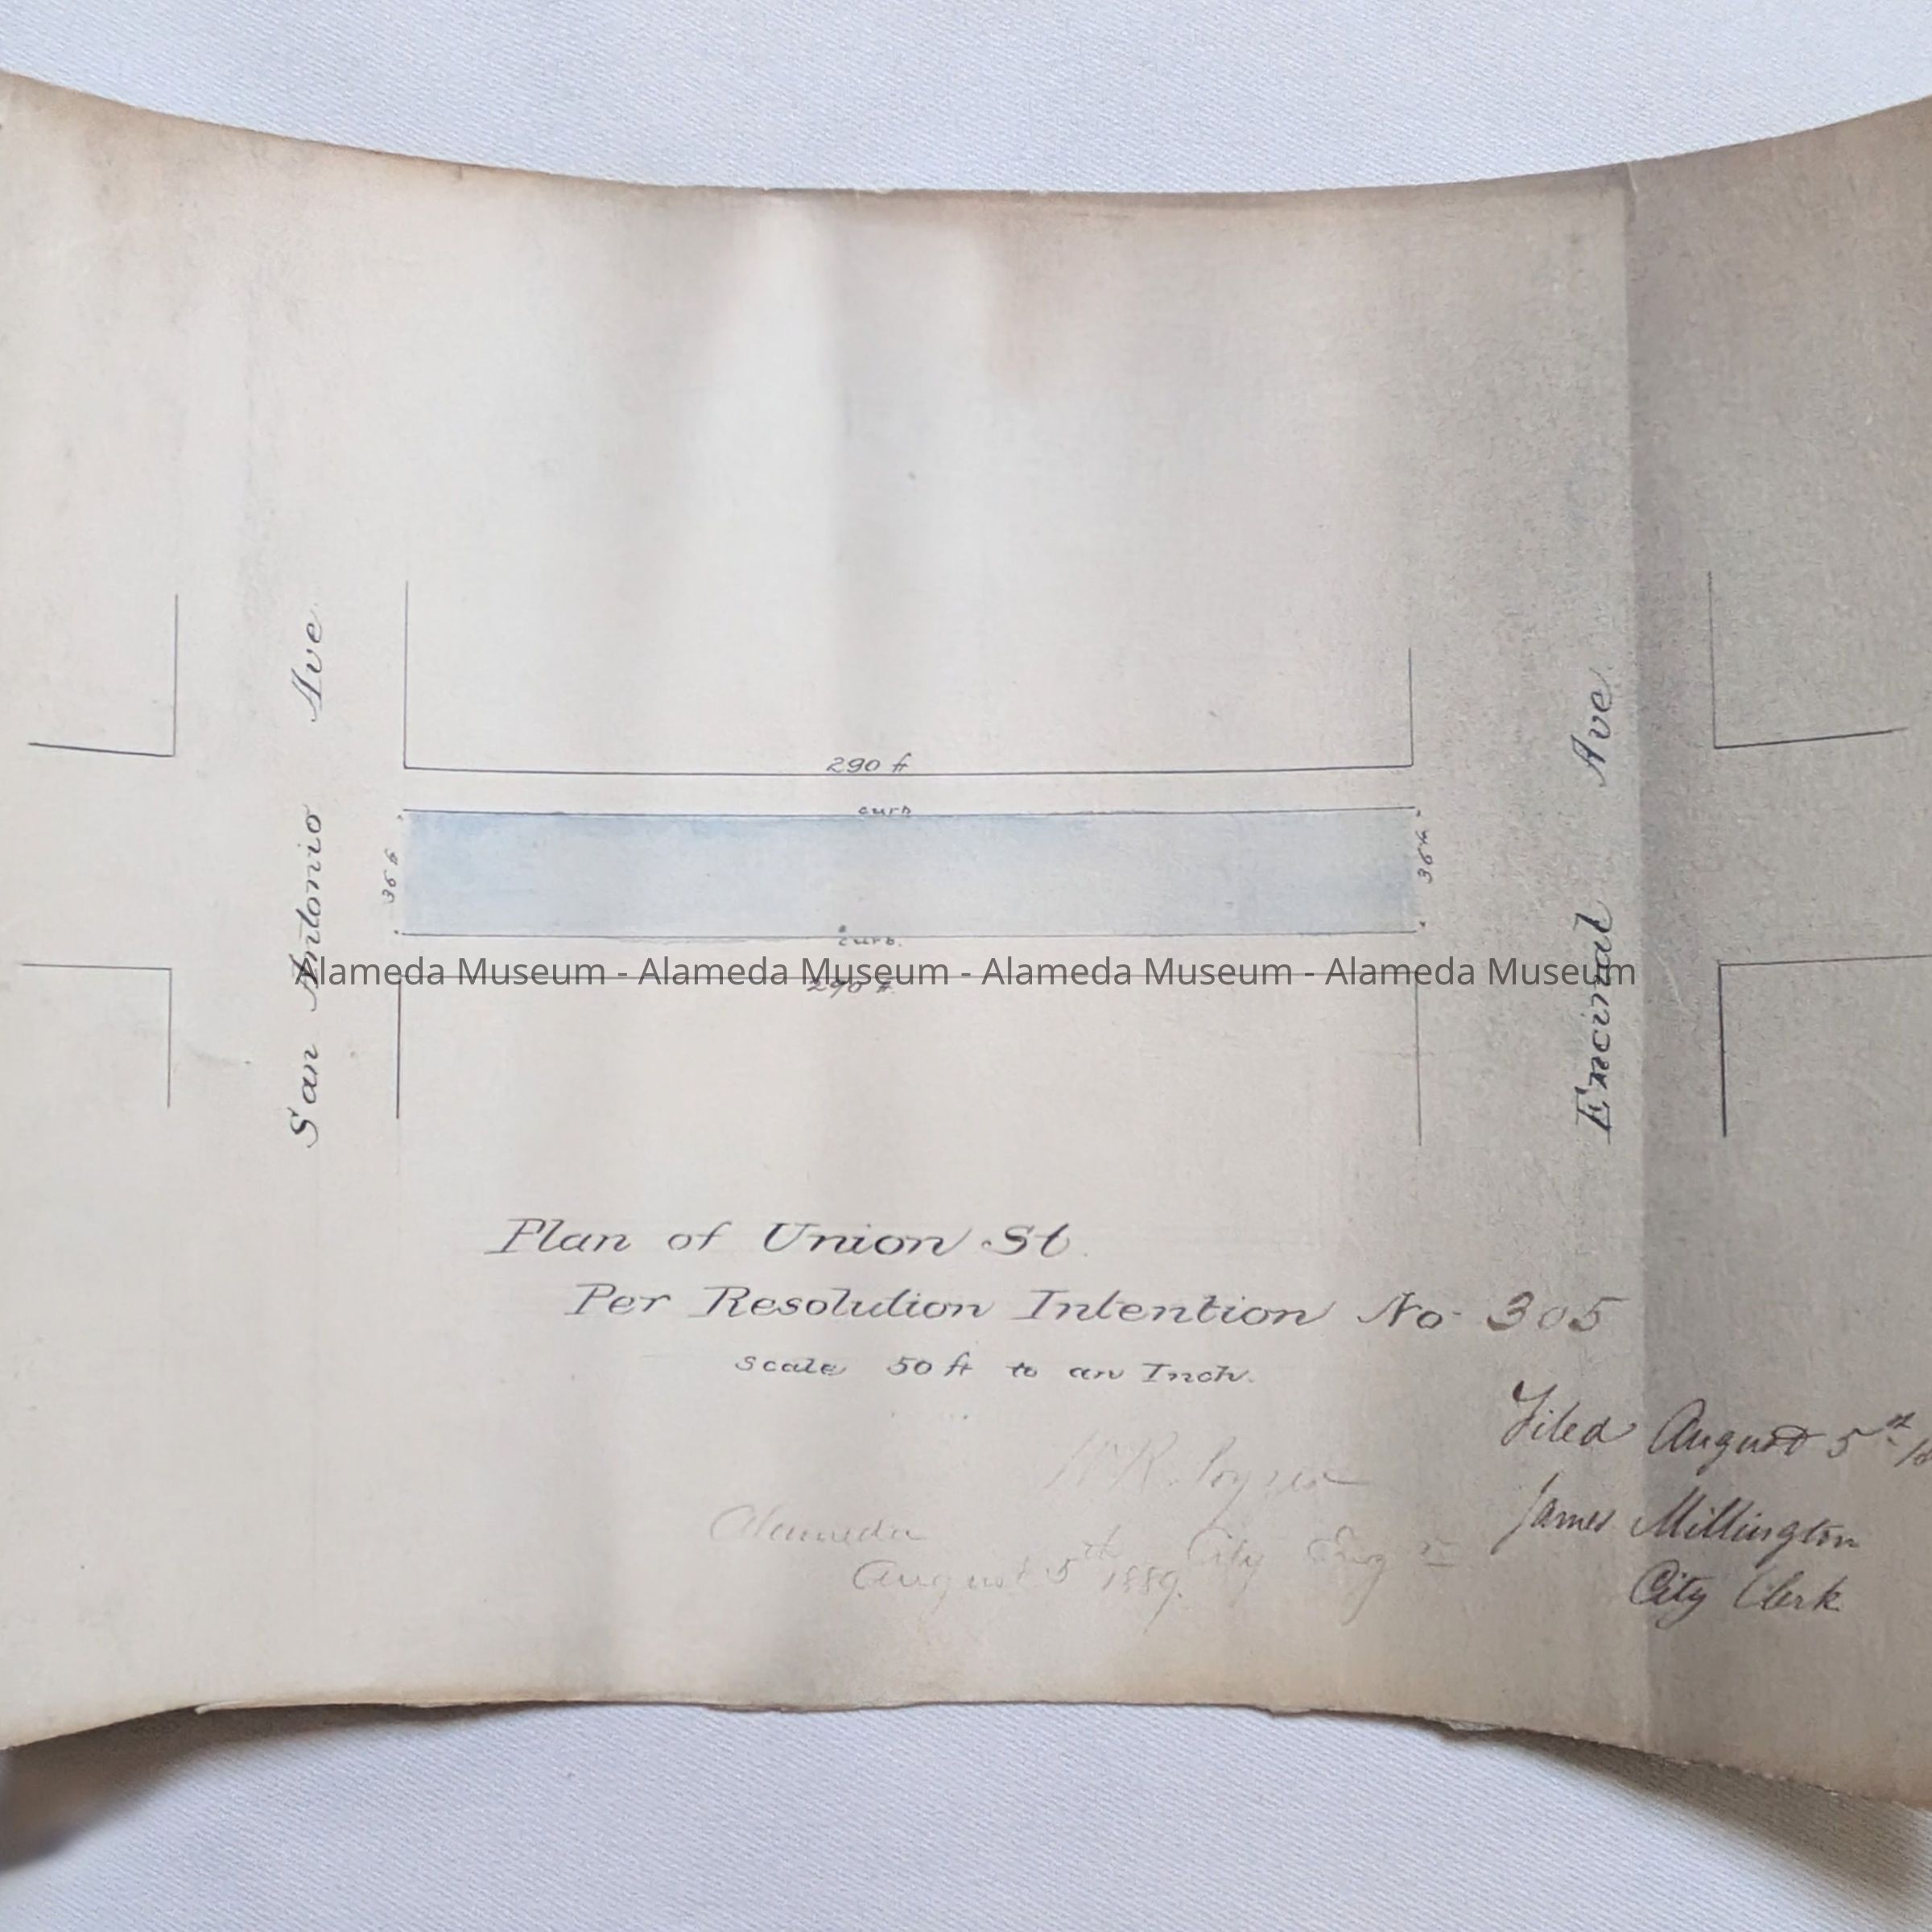 San Antonio Ave.
290 ft
curb
36 ft
36 ft
curb.
290 ft.
Encinal Ave.
Alameda Museum - Alameda Museum - Alameda Museum - Alameda Museum
Plan of Union St.
Per Resolution Intention No. 305
Scale 50 ft to an Inch.
Alameda
August 5th 1889.
City Engr
Filed August 5th
James Millington
City Clerk